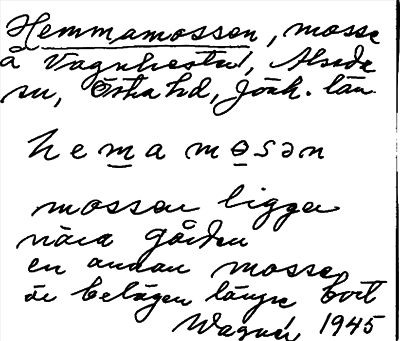 Hemmamossen, mosse
å Vagnhester, Alseda
sn, Östra hd, Jönk. län
hemamosən
mossen ligger
nära gården
en annan mosse
är belägen längre bort
Wagner 1945